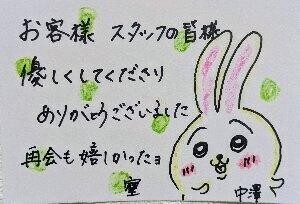 お客様 スタッフの皆様
優しくしてくださり
ありがとうございました
再会も嬉しかったョ
中澤